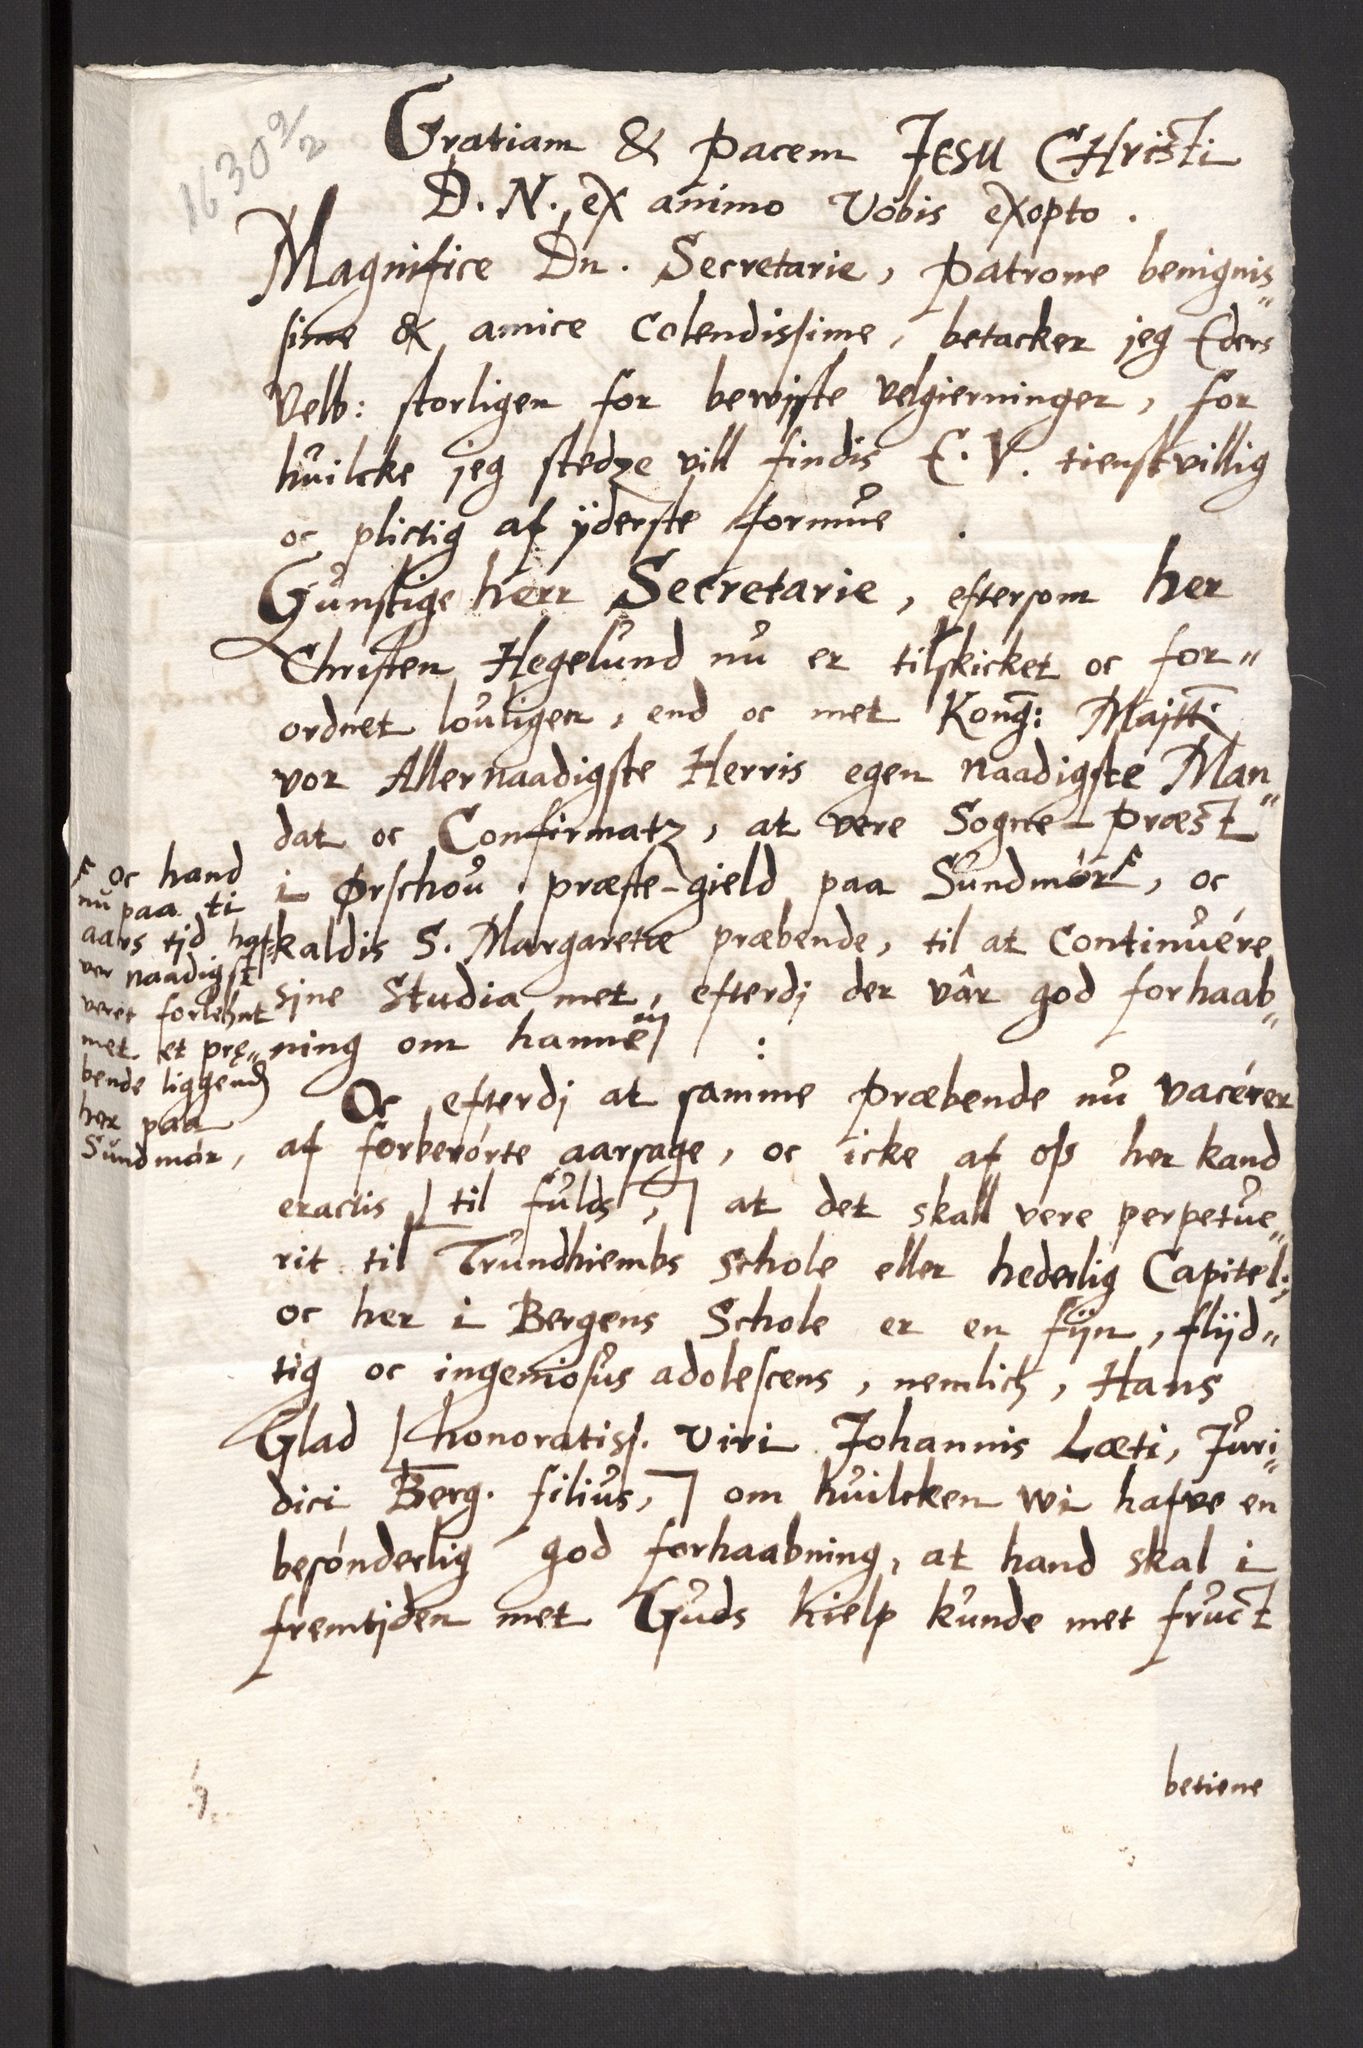 1630 9/2
Gratiam & pacem JESU CHristi
D. N. ex animo Vobis exopto.
Magnifice Dn. Secretarie, patrone benignis„
sime & amice Colendissime, betacker jeg Eders
Velb: storligen for bewjste velgierninger, for
huilcke jeg stedze vill findis E. V. tienstvillig
oc plictig af ÿderste formue.
Gunstige herr Secretarie, eftersom her
Christen Hegelund nu er tilskicket oc for„
ordnet louligen, end oc met Kong: Majtt:
vor Allernaadigste Herris egen naadigste Man„
dat oc Confirmatz, at vere Sogne-Præst
i Ørschou præste-gield paa Sundmór F, oc
kaldis S. Margaretæ præbende, til at Continuére
sine Studia met, efterdj der vâr god forhaab„
ning om hannem:
F oc hand
nu paa ti
aars tjd haf„
ver naadigst
veret forlehnt
met et prę„
bende liggend
her paa
Sundmór,
Oc efterdj at samme Præbende nu vacérer
af forberórte aarsage, oc icke af oss her kand
eractis [til fulds,] at det skall vere perpetue„
rit til Trundhiembs Schole eller hederlig Capitel;
oc her i Bergens Schole er en fÿn, flÿd„
tig oc ingeniosus adolescens, nemlich, Hans
Glad [honoratiss. viri Johannis Læti, Juri„
dici Berg. filius,] om huilcken wi hafve en
besónderlig god forhaabning, at hand skal i
fremtjden met Guds hielp kunde met fruct
betiene